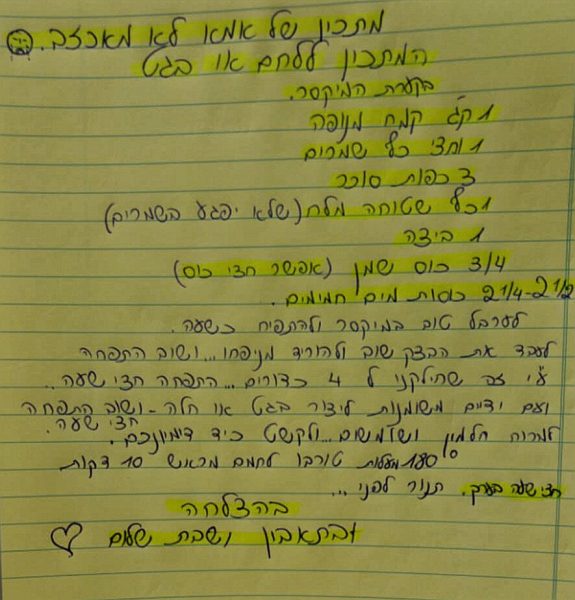 מתכון של אמא לא מאכזב.
המתכון ללחם או בגט
בקערת המיקסר.
1 ק"ג קמח מנופה
1 וחצי כף שמרים
3 כפות סוכר
1 כף שטוחה מלח (שלא יפגע בשמרים)
1 ביצה
3/4 כוס שמן (אפשר חצי כוס)
2 1/4-2 1/2 כוסות מים חמימים.
לערבל טוב במיקסר ולהתפיח כשעה.
לעבד את הבצק שוב ולהוריד מניפחו... ושוב התפחה
ע"י זה שחילקנו ל 4 כדורים... התפחה חצי שעה..
ועם ידיים משומנות ליצור בגט או חלה - ושוב התפחה
חצי שעה.
למרוח חלמון ושומשום... ולקשט כיד דימיונכם.
180° מעלות טורבו לחמם מראש 10 דקות
חצי שעה בערך. תנור לפני...
בהצלחה
ובתאבון ושבת שלום